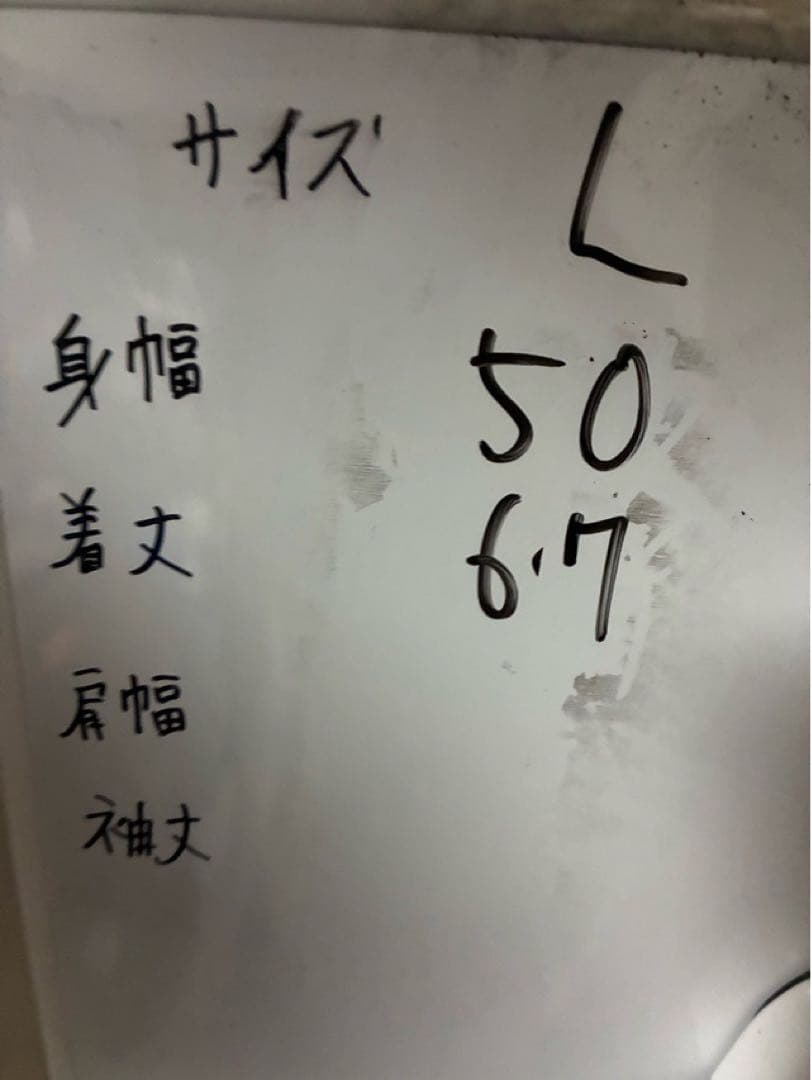 サイズ L
身幅 50
着丈 6.7
肩幅
袖丈